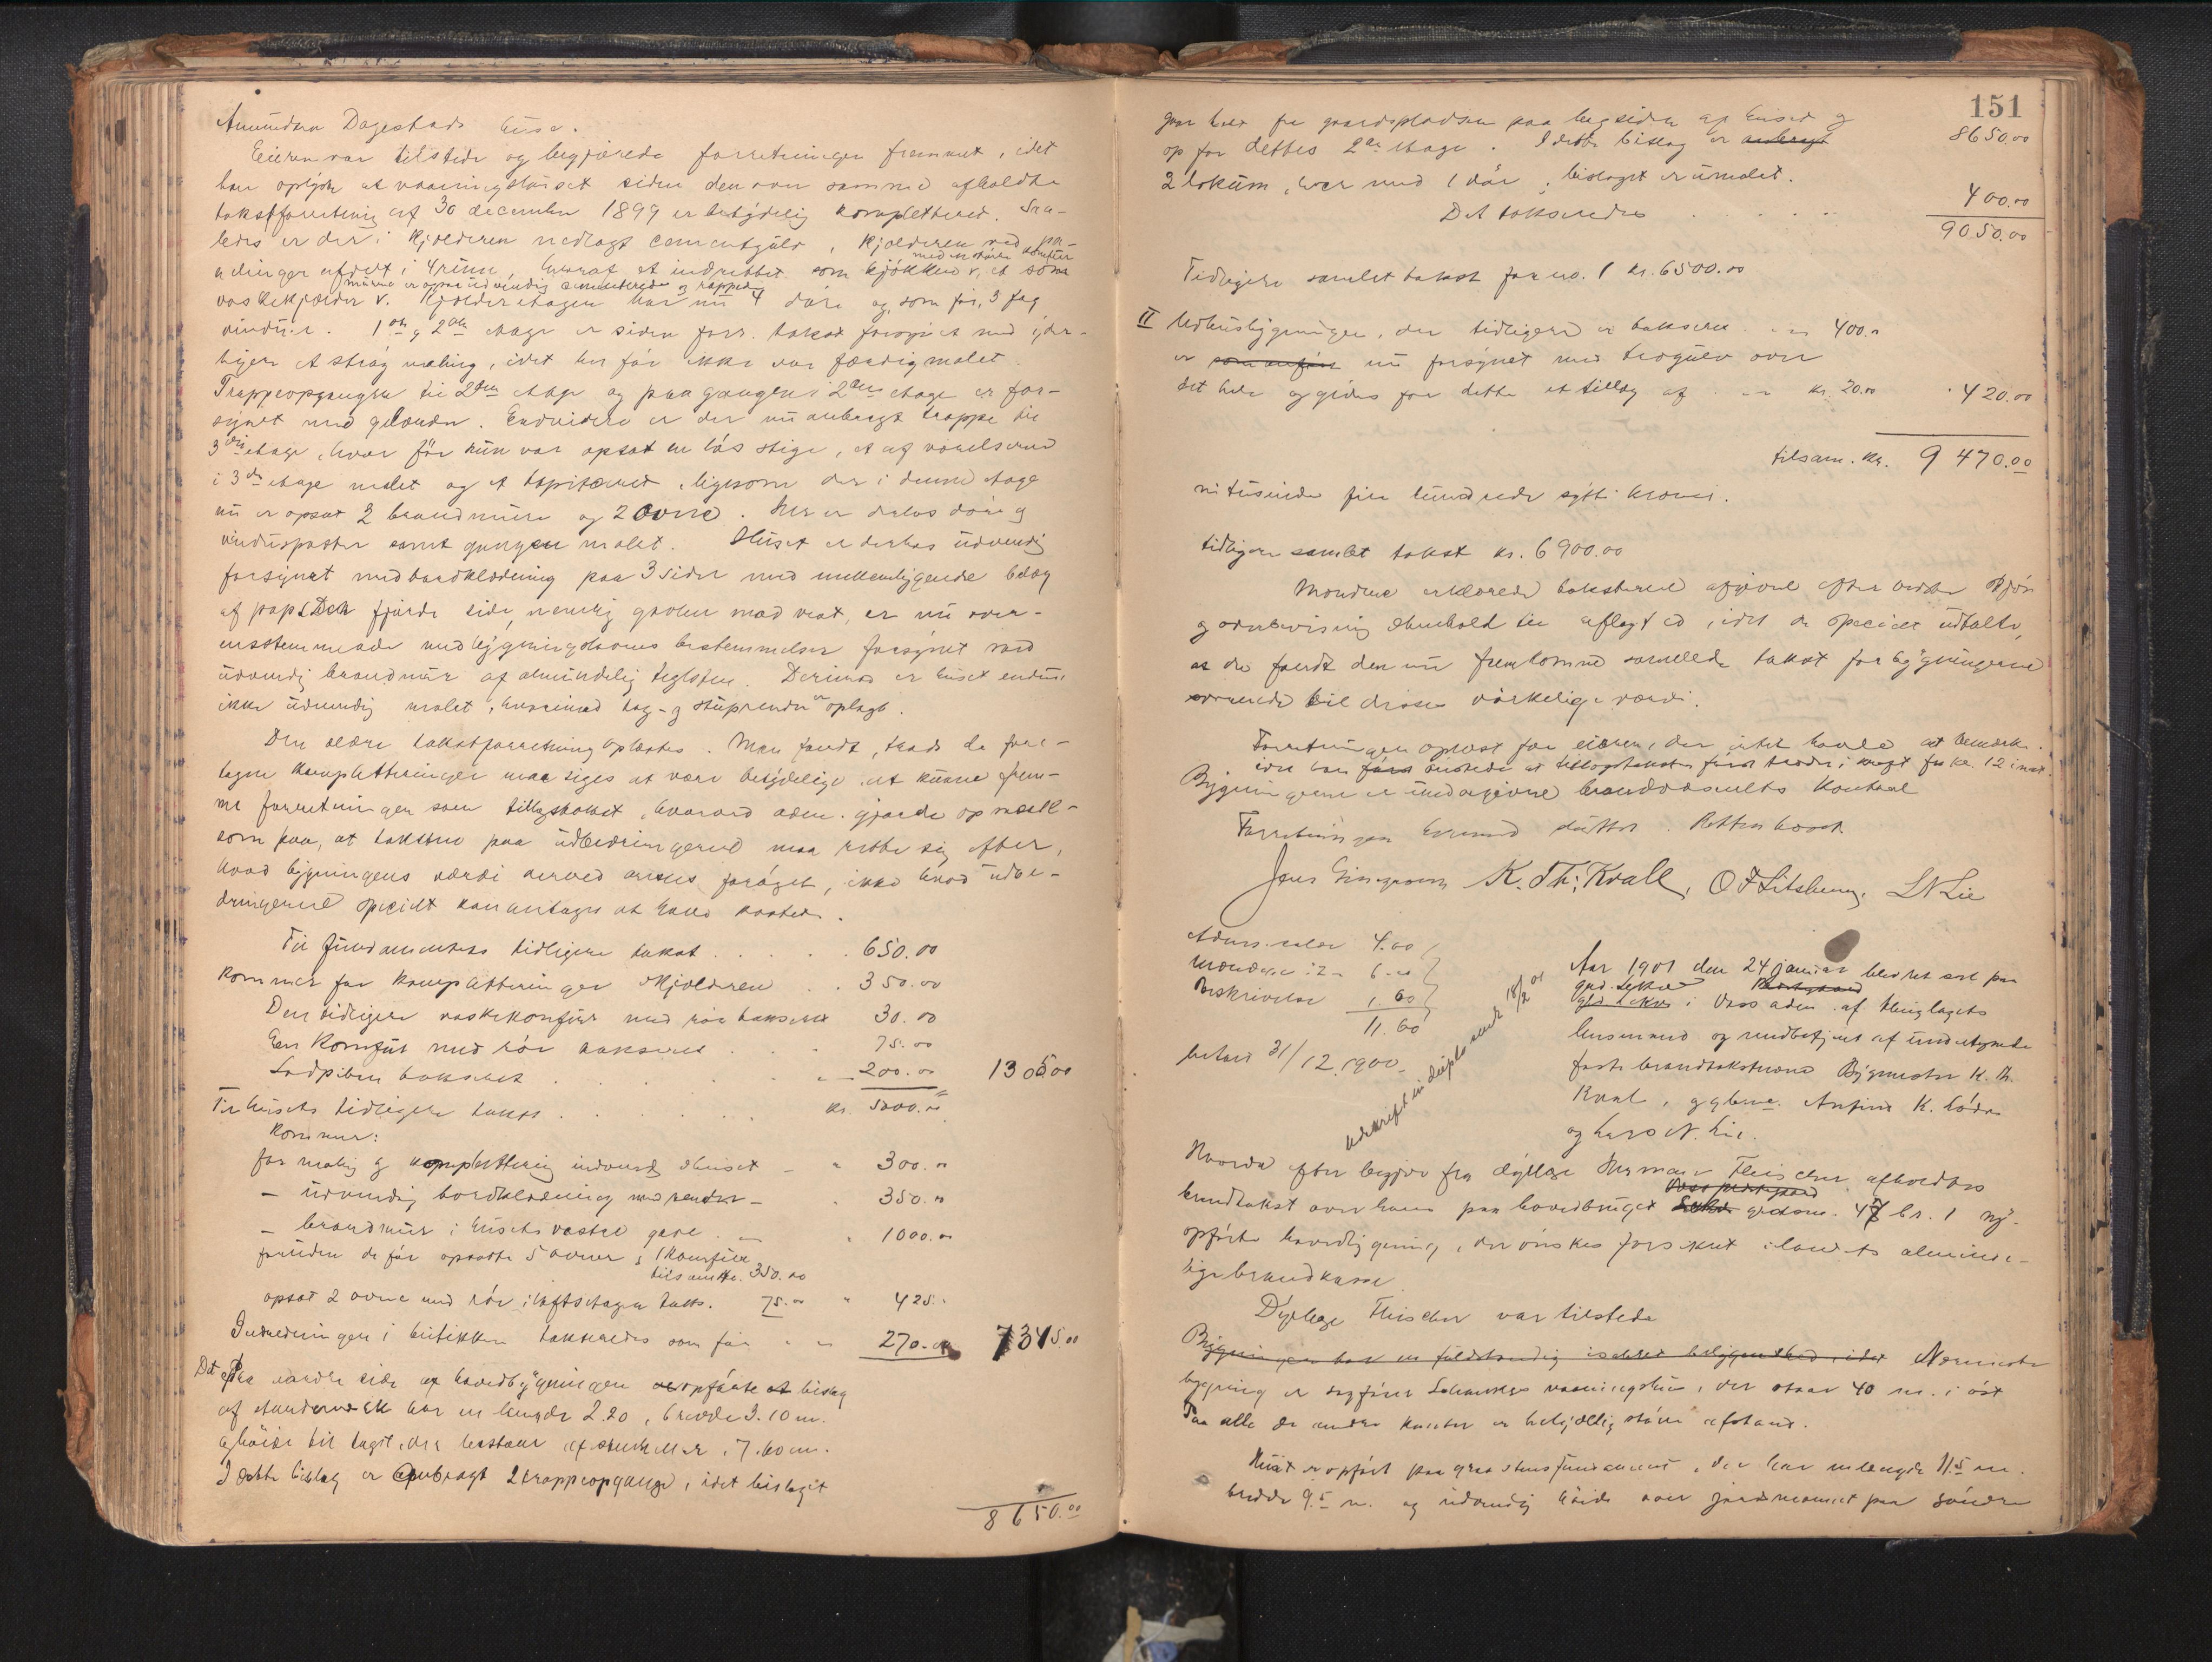 Amundsen Dagestads huse.
Eieren var tilstede og begjærede forretningen fremmet, idet
han oplyste at vaaningshuset siden den over samme afholdte
takstforretning af 30 december 1899 er betydelig kompletteret. Saa-
ledes er der i kjelderen nedlagt cementgulv, kjelderen ved pa-
nelinger afdelt i 4 rum, hvoraf et indrettet som kjøkken, et som
med en større komfur
vaskekjelder. Kjelderetagen har nu 4 døre og, som før, 3 fag
murene er ogsaa udvendig cementerede og rappede
vinduer. 1ste og 2den etage er siden forr. takst forsynet med yder-
ligere et strøg maling, idet her før ikke var færdigmalet.
Trappeopgangen til 2den etage og paa gangen i 2den etage er for-
synet med gelænder. Endvidere er der nu anbragt trappe til
3die etage, hvor før kun var opsat en løs stige, et af værelserne
i 3die etage malet og et tapitseret, ligesom der i denne etage
nu er opsat 2 brandmure og 2 ovne. Her er derhos døre og
vinduesposter samt gangen malet. Huset er derhos udvendig
forsynet med bordklædning paa 3 sider med mellemliggende belæg
af pap. Den fjerde side, nemlig gavlen mod vest, er nu over-
ensstemmende med bygningslovens bestemmelser forsynet med
udvendig brandmur af almindelig teglsten. Derimod er huset endnu
ikke udvendig malet, hvorimod tag- og stuprender er oplagt.
Den ældre takstforretning oplæstes. Man fandt, trods de fore-
tagne kompletteringer maa siges at være betydelige, at kunne frem-
me forretningen som tillægstakst, hvorved adm. gjorde opmærk-
som paa, at taksten paa udbedringerne maa rette sig efter,
hvad bygningens værdi derved ansees forøget, ikke hvad udbe-
dringerne specielt kan antages at have kostet.
Til fundamentets tidligere takst . . . . 650.00
kommer for kompletteringer i kjelderen . . 350.00
Den tidligere vaskekomfur med rør takseret 30.00
Een komfur med rør takseret . . 75.00
Lodpiben takseret . . . . 200.00 1305.00
Til husets tidligere takst . . . . kr. 5000.00
kommer:
for maling og komplettering indvendig i huset - " 300.00
- udvendig bordklædning med render - " 350.00
- brandmur i husets vestre gavl . - " 1000.00
foruden de før opsatte 5 ovner, 1 komfur
tilsam. kr. 350.00
opsat 2 ovne med rør i loftsetagen taks. 75.00 " 425.00
Indredningen i butikken takseredes som før " 270.00 7345.00
Det paa nordre side af hovedbygningen opførte bislag
af standerverk har en længde 2.20, bredde 3.10 m.
og høide til taget, der bestaar af stenheller, 7.60 m.
I dette bislag er anbragt 2 trappeopgange, idet bislaget
8650.00
151
gaar helt fra gaardspladsen paa bagsiden af huset og
8650.00
op for dettes 2den etage. I dette bislag er anbragt
2 lokum, hver med 1 dør; bislaget er umalet.
Det takseredes . . . . . 400.00
9050.00
Tidligere samlet takst for no. 1 kr. 6500.00
II Udhusbygningen, der tidligere er takseret . . . 400.00
er som anført nu forsynet med trægulv over
det hele og gives for dette et tillæg af . . kr. 20.00 . 420.00
tilsam. kr. 9 470.00
ni tusinde fire hundrede sytti kroner.
tidligere samlet takst kr. 6900.00
Mændene erklærede taksterne afgivne efter bedste skjøn
og overbevisning i henhold til aflagt ed, idet de specielt udtalte,
at de fandt den nu fremkomne samlede takst for bygningerne
svarende til disses virkelige værdi.
Forretningen oplæst for eieren, der intet havde at bemærke.
idet han først ønskede at tillægstaksten først træder i kraft fra kl. 12 inat.
Bygningerne er undergivne brandvæsenets kontrol
Forretningen hermed sluttet. Retten hævet.
K. Th. Kvall, O F Litsheim, L N Lie
Adms. salær 4.00
Mændene i 2 - 6.00
Beskrivelse 1.60
11.60
betalt 31/12 1900
Udskrift in duplo sendt 18/2 01
Aar 1901 den 24 januar blev ret sat paa
grd. Lekve Prestegaard
grd. Lekve i Voss adm. af thinglagets
lensmand og medbetjent af undertegnede
faste brandtakstmænd Bygmester K. Th.
Kvale, og gbrne. Anfind K. Løde
og Lars N. Lie.
Hvorda efter begjær fra dyrlæge Herman Fleischer afholdtes
Voss prestegaard
brandtakst over hans paa hovedbruget Lekve gaardsno. 47 br. 1 ny-
opførte hovedbygning, der ønskes forsikret i landets alminde-
lige brandkasse
Dyrlæge Fleischer var tilstede
Bygningen har en fuldstændig isoleret beliggenhed, idet Nærmeste
bygning er sagfører Schankes vaaningshus, der staar 40 m. i øst
Paa alle de andre kanter er betydelig større afstand.
Huset er opført paa graastensfundament, der har en længde 11.5 m.
bredde 9.5 m. og udvendig høide over jordsmonnet paa søndre